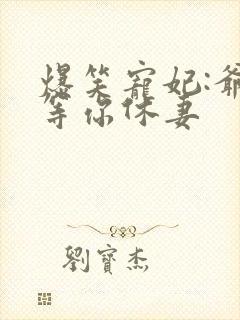 爆笑寵妃:爺
等你休妻
劉寶杰